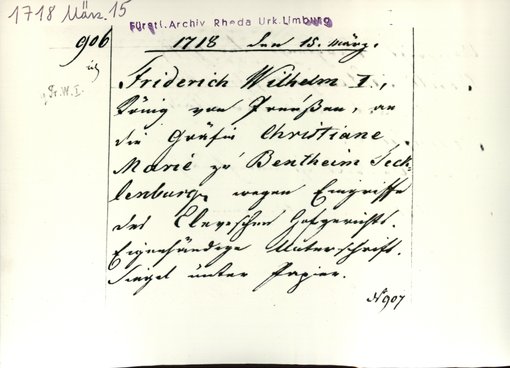 1718 März 15
Fürstl. Archiv Rheda Urk. Limburg
906
1718 den 15. März.
Fr. W. I.
Friderich Wilhelm I,
König von Preußen, an
die Gräfin Christiane
Marie zu Bentheim Teck-
lenburg wegen Eingriffe
des Cleveschen Hofgerichts.
Eigenhändige Unterschrift.
Siegel unter Papier.
No 907